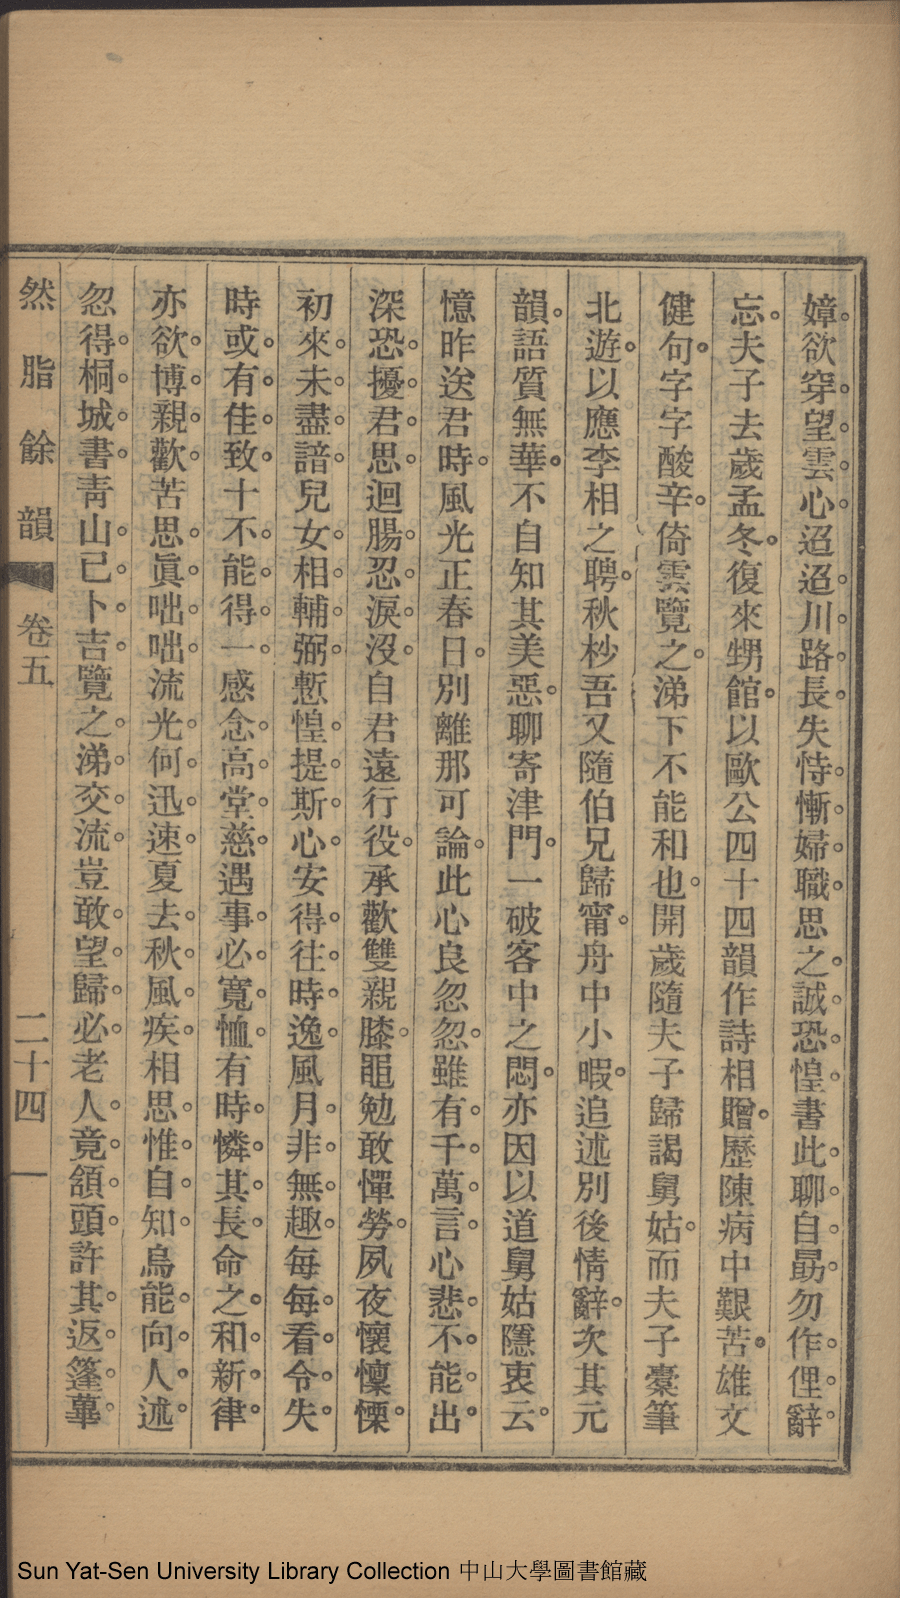 嫜欲穿望雲心迢迢川路長失恃慚婦職思之誠恐惶書此聊自勗勿作俚辭
忘夫子去歲孟冬復來甥館以歐公四十四韻作詩相贈歷陳病中艱苦雄文
健句字字酸辛倚雲覽之涕下不能和也開歲隨夫子歸謁舅姑而夫子橐筆
北遊以應李相之聘秋杪吾又隨伯兄歸甯舟中小暇追述別後情辭次其元
韻語質無華不自知其美惡聊寄津門一破客中之悶亦因以道舅姑隱衷云
憶昨送君時風光正春日別離那可論此心良忽忽雖有千萬言心悲不能出
深恐擾君思迴腸忍淚沒自君遠行役承歡雙親膝黽勉敢憚勞夙夜懷懍慄
初來未盡諳兒女相輔弼慙惶提斯心安得往時逸風月非無趣每每看令失
時或有佳致十不能得一感念高堂慈遇事必寬恤有時憐其長命之和新律
亦欲博親歡苦思眞咄咄流光何迅速夏去秋風疾相思惟自知烏能向人述
忽得桐城書靑山已卜吉覽之涕交流豈敢望歸必老人竟頷頭許其返篷蓽
然脂餘韻 卷五 二十四
Sun Yat-Sen University Library Collection 中山大學圖書館藏